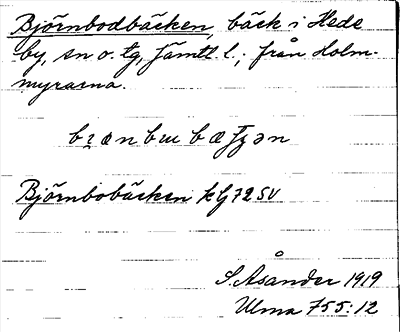 Björnbodbäcken, bäck i Hede
by, sn o. tg, Jämtl. l.; från Holm-
myrarna.
Björnbobäcken kG 72 SV
S. Åsander 1919
Ulma 755:12